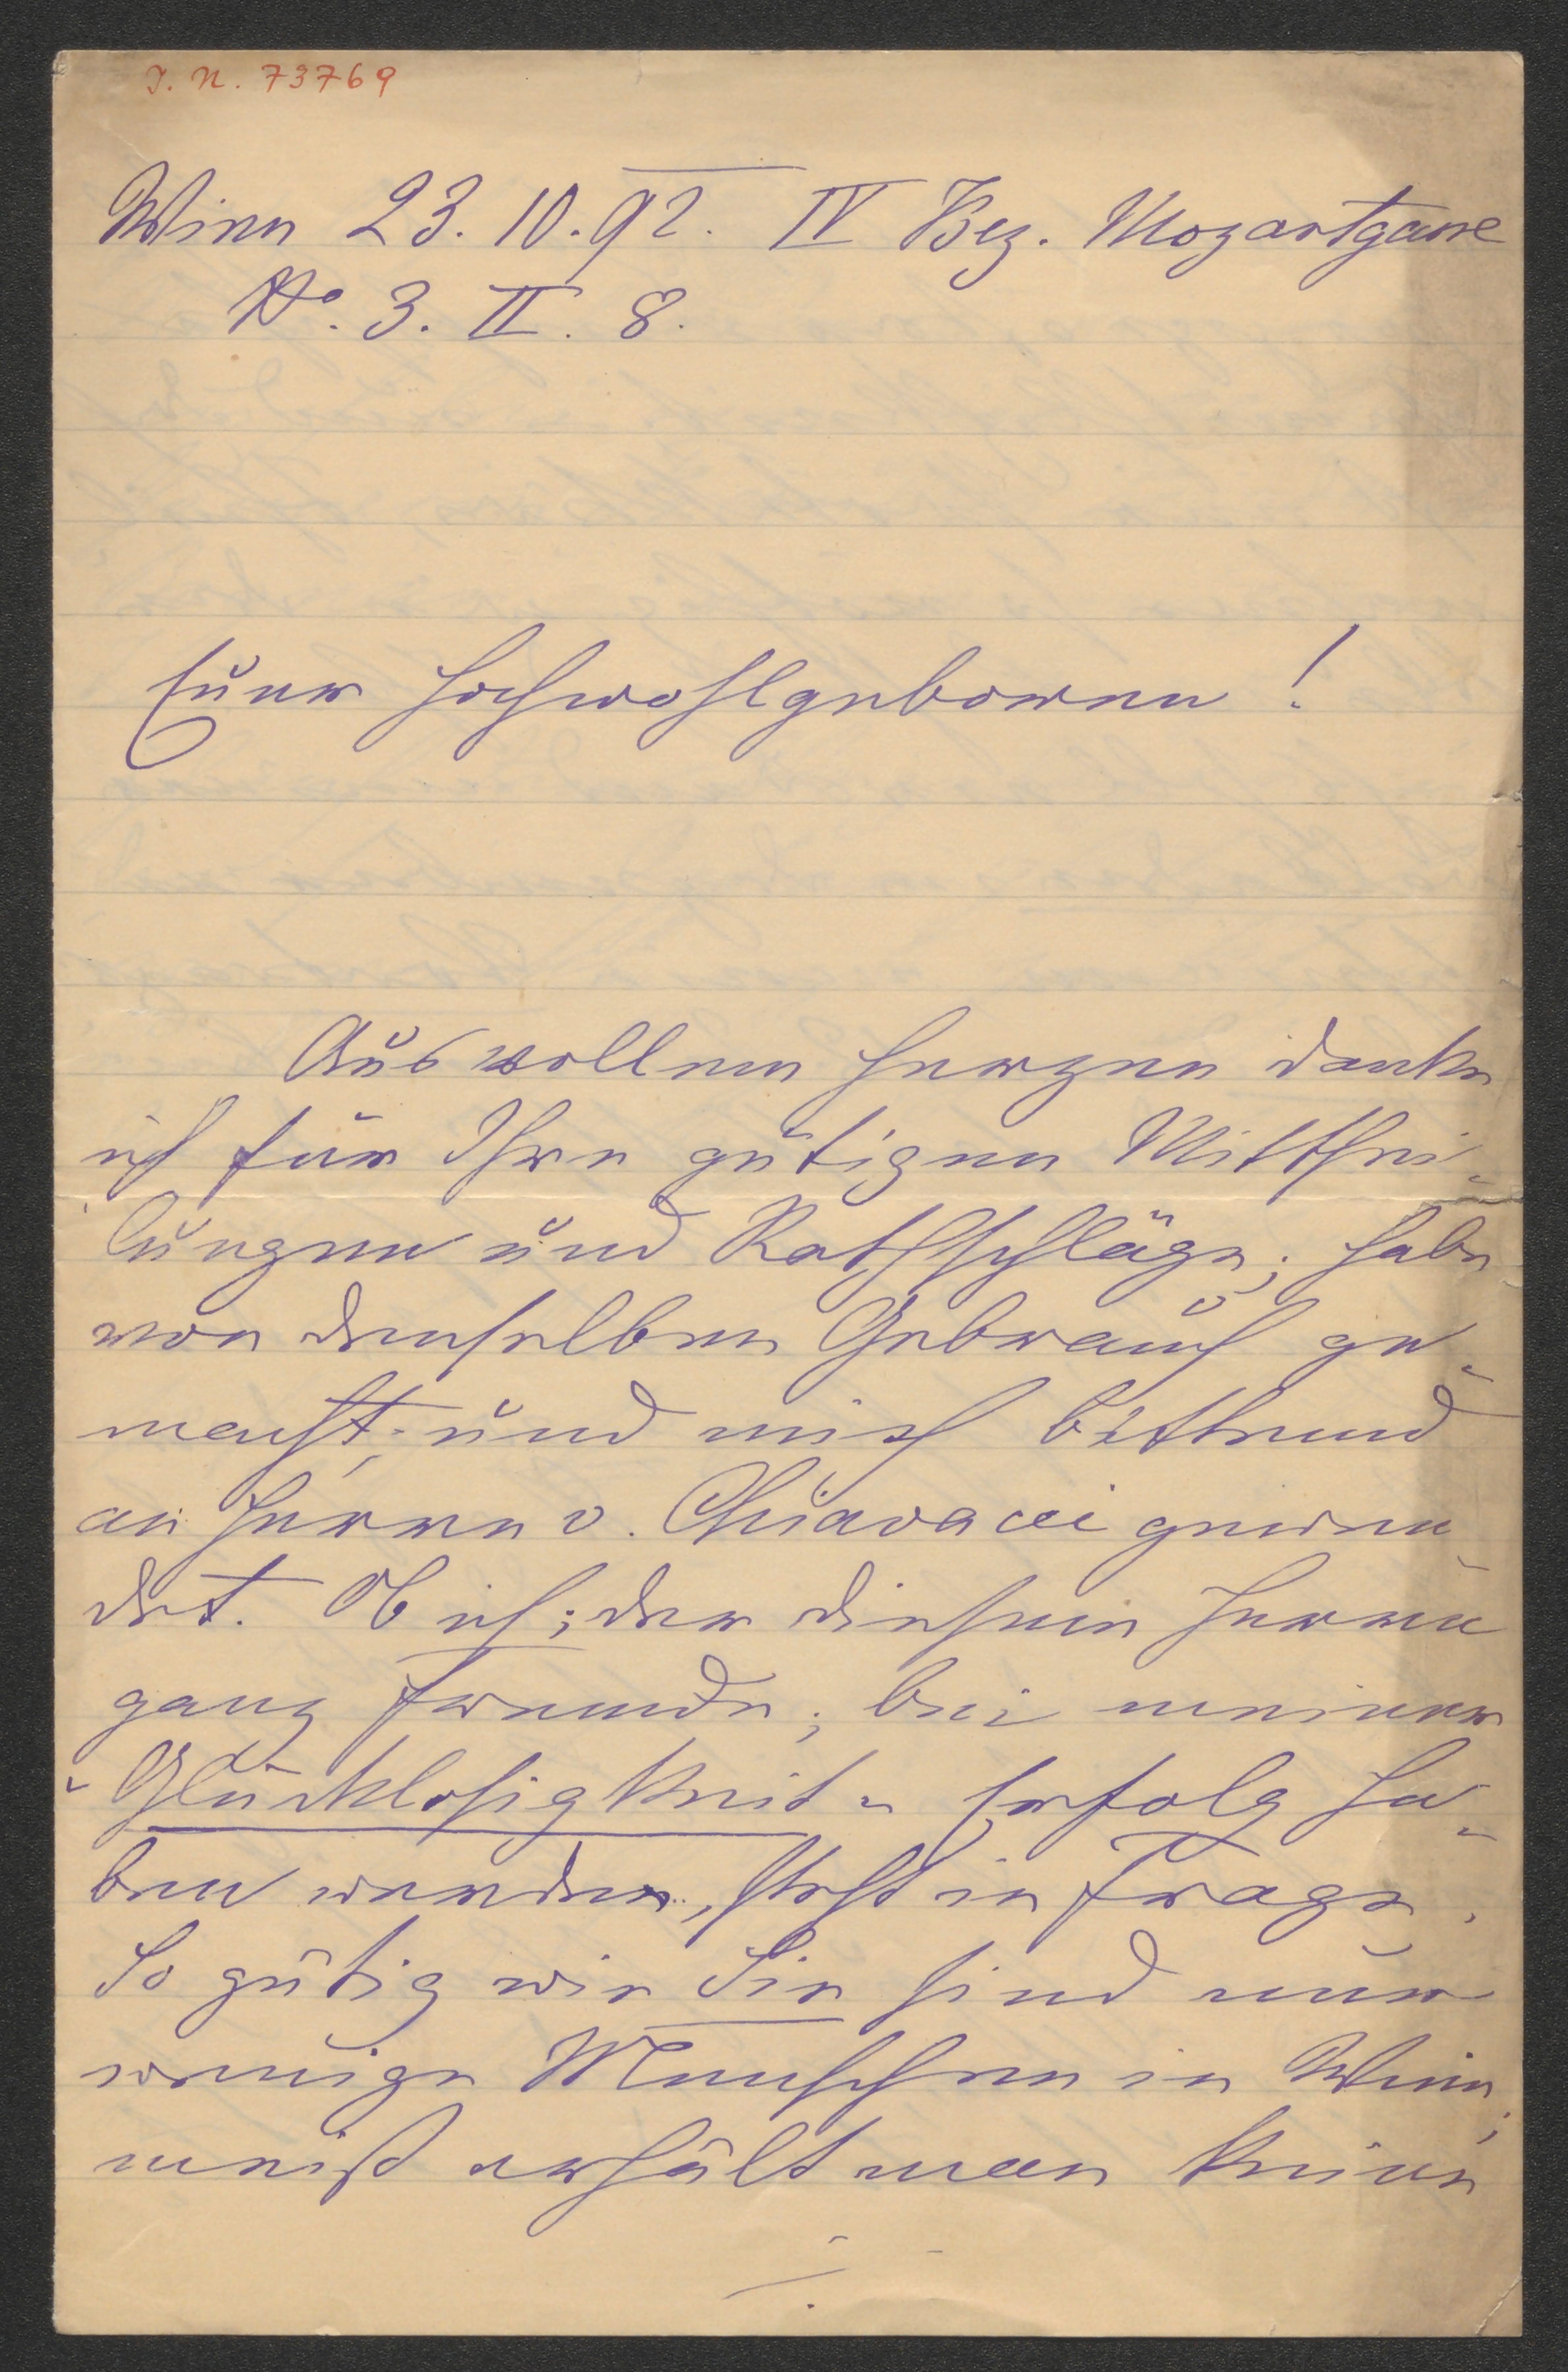 I. N. 73769
Wien 23. 10. 92. IV Bez. Mozartgasse
No. 3. II. 8.
Euer Hochwohlgeboren!
Aus vollem Herzen danke
ich für Ihre gütigen Mitthei-
lungen und Rathschläge; habe
von denselben Gebrauch ge-
macht; und mich bittend
an Herrn v. Chiavacci gewen-
det. Ob ich; der diesem Herrn
ganz Fremde; bei meiner
"Glücklosigkeit" Erfolg ha-
ben werden, steht in Frage.
So gütig wie Sie sind nur
wenige Menschen in Wien;
meist erhält man keine
./.